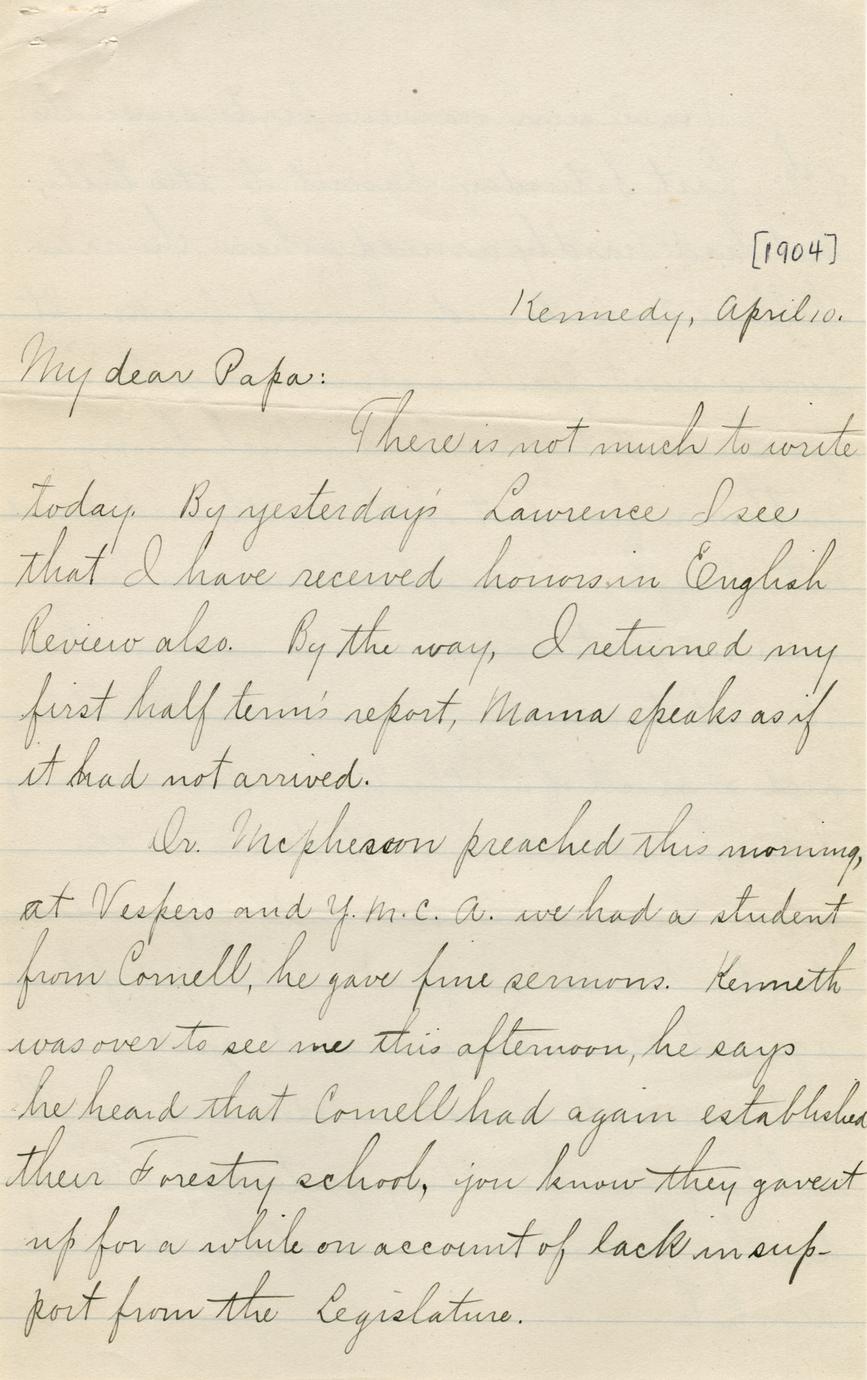 [1904]
Kennedy, April 10.
My dear Papa:
There is not much to write
today. By yesterday's Lawrence I see
that I have received honors in English
Review also. By the way, I returned my
first half term's report, Mama speaks as if
it had not arrived.
Dr. Mcpherson preached this morning,
at Vespers and Y.M.C.A. we had a student
from Cornell, he gave fine sermons. Kenneth
was over to see me this afternoon, he says
he heard that Cornell had again established
their Forestry school, you know they gave it
up for a while on account of lack in sup-
port from the Legislature.